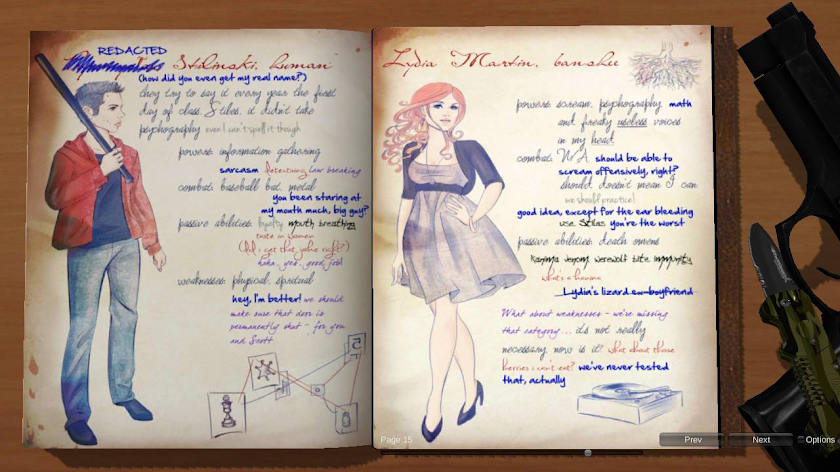 REDACTED
Stilinski, human
(how did you even get my real name?)
they try to say it every year the first
day of class. Stiles. it didn't take
psychography even I can't spell it though
powers: information gathering
sarcasm detecting law breaking
combat: baseball bat, metal
you been staring at
my mouth much, big guy?
passive abilities: loyalty mouth breathing
taste in women
(did i get that joke right?)
haha, yes, good job!
weaknesses: physical, spiritual
hey, I'm better! we should
make sure that door is
permanently shut - for you
and Scott
Lydia Martin, banshee
powers: scream, psychography math
and freaky useless voices
in my head
combat: N/A should be able to
scream offensively, right?
should doesn't mean I can
we should practice!
good idea, except for the ear bleeding
use Stiles you're the worst
passive abilities: death omens
Kanima venom, werewolf bite immunity
what's a kanima
Lydia's lizard ex-boyfriend
What about weaknesses - we're missing
that category... it's not really
necessary now is it? what about those
berries i cant eat? we've never tested
that, actually
Page 15
Prev
Next
Options